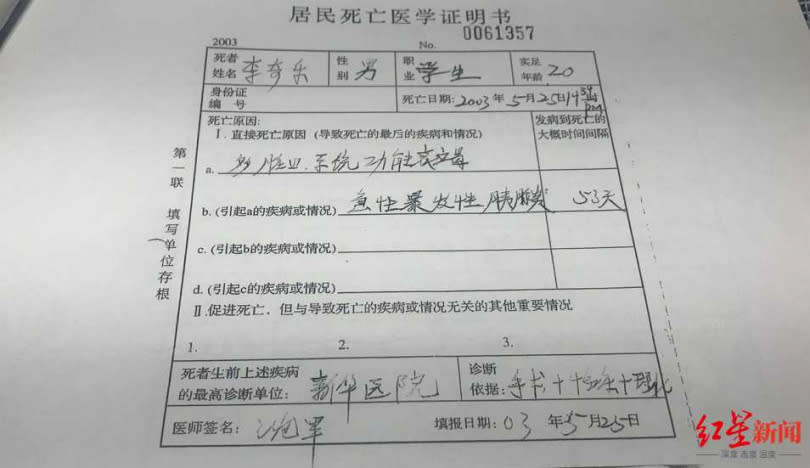 居民死亡医学证明书
2003 No. 0061357
死者姓名 李奇乐 性别 男 职业 学生 实足年龄 20
身份证编号 死亡日期: 2003年5月25日14时
死亡原因: 发病到死亡的大概时间间隔
I. 直接死亡原因 (导致死亡的最后的疾病和情况)
a. 多脏. 系统功能衰竭
b. (引起a的疾病或情况) 急性暴发性胰腺炎 53天
c. (引起b的疾病或情况)
d. (引起c的疾病或情况)
II.促进死亡,但与导致死亡的疾病或情况无关的其他重要情况
1. 2. 3.
死者生前上述疾病的最高诊断单位: 新华医院 诊断依据: 手术+
医师签名: 填报日期: 03年5月25日
第一联 填写单位存根
红星新闻
深度 态度 温度